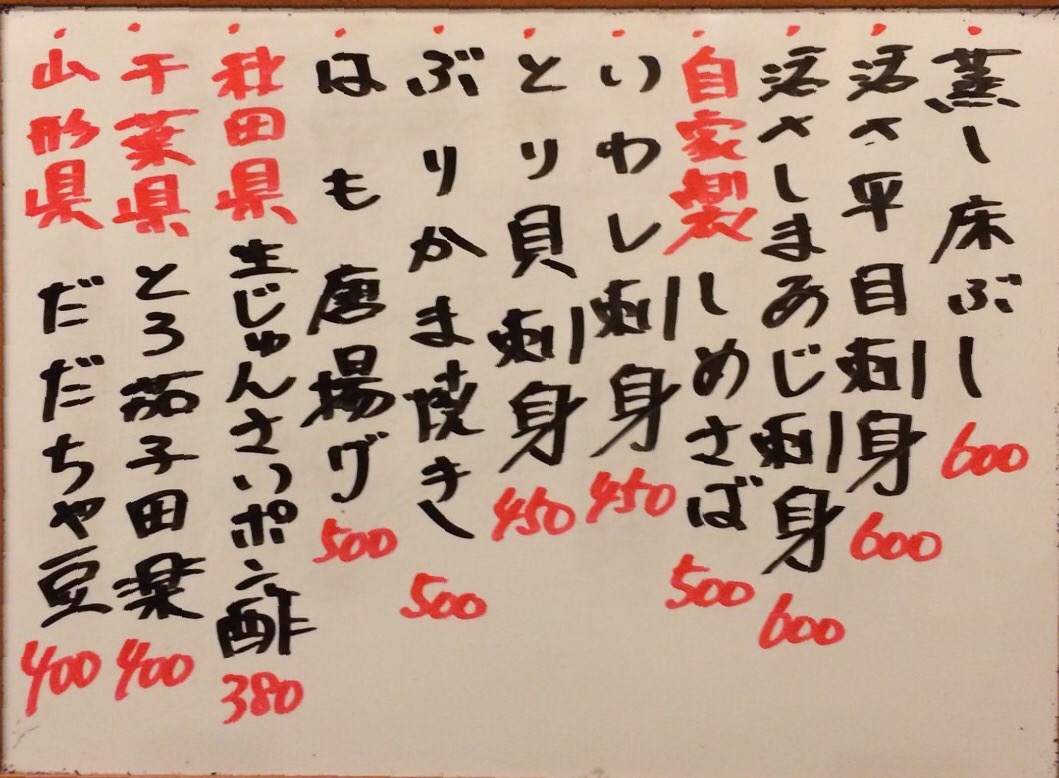 蒸し床ぶし 600
活〆平目刺身 600
活〆しまあじ刺身 600
自家製 しめさば 500
いわし刺身 450
とり貝刺身 450
ぶりかま焼き 500
はも唐揚げ 500
秋田県 生じゅんさいポン酢 380
千葉県 とろ茄子田楽 400
山形県 だだちゃ豆 400